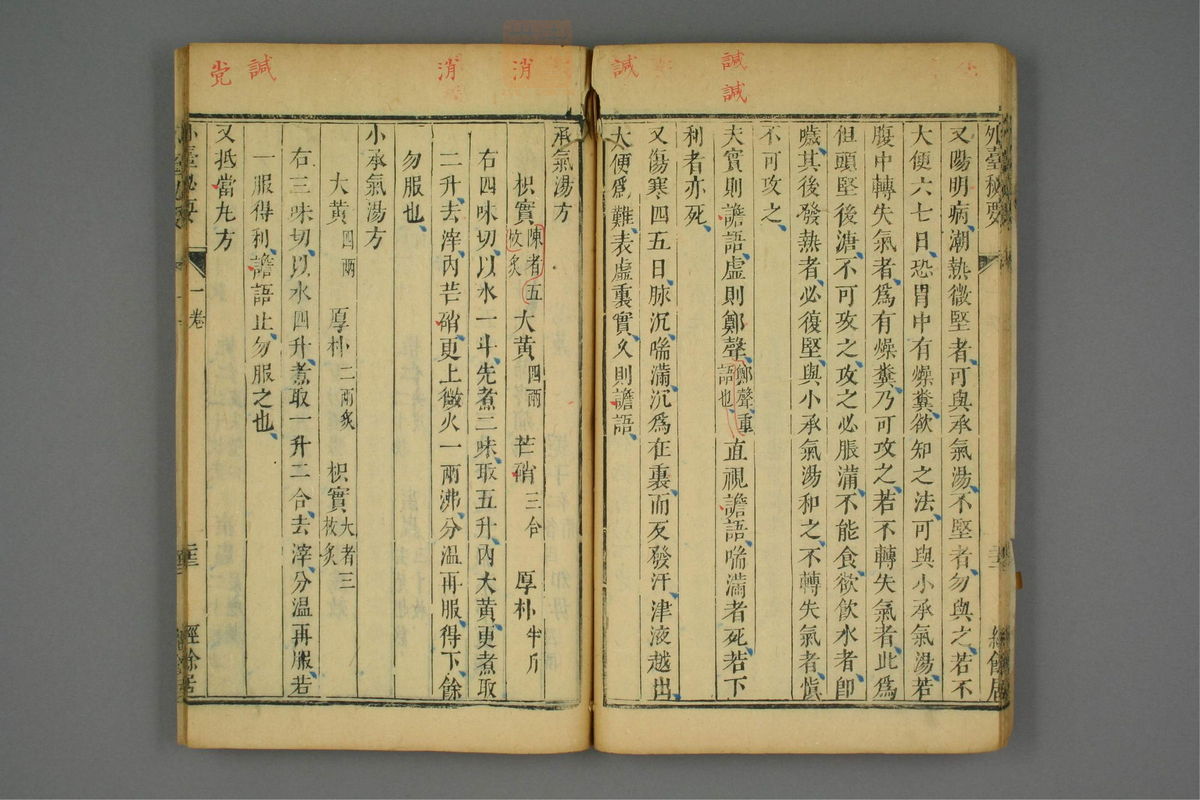 誠
誠
誠
外臺秘要
又陽明病潮熱微堅者可與承氣湯不堅者勿與之若不
大便六七日恐胃中有燥糞欲知之法可與小承氣湯若
腹中轉失氣者爲有燥糞乃可攻之若不轉失氣者此爲
但頭堅後溏不可攻之攻之必脹滿不能食欲飲水者卽
噦其後發熱者必復堅與小承氣湯和之不轉失氣者慎
不可攻之
夫實則譫語虛則鄭聲鄭聲重語也直視譫語喘滿者死若下
利者亦死
又傷寒四五日脉沉喘滿沉爲在裏而反發汗津液越出
大便爲難表虛裏實久則譫語
經餘居
消
消
誠
党
承氣湯方
枳實陳者五枚炙 大黃四兩 芒硝三合 厚朴半斤
右四味切以水一斗先煮二味取五升內大黃更煮取
二升去滓內芒硝更上微火一兩沸分温再服得下餘
勿服也
小承氣湯方
大黃四兩 厚朴二兩炙 枳實大者三枚炙
右三味切以水四升煮取一升二合去滓分温再服若
一服得利譫語止勿服之也
又抵當丸方
外臺秘要
一卷
經餘居